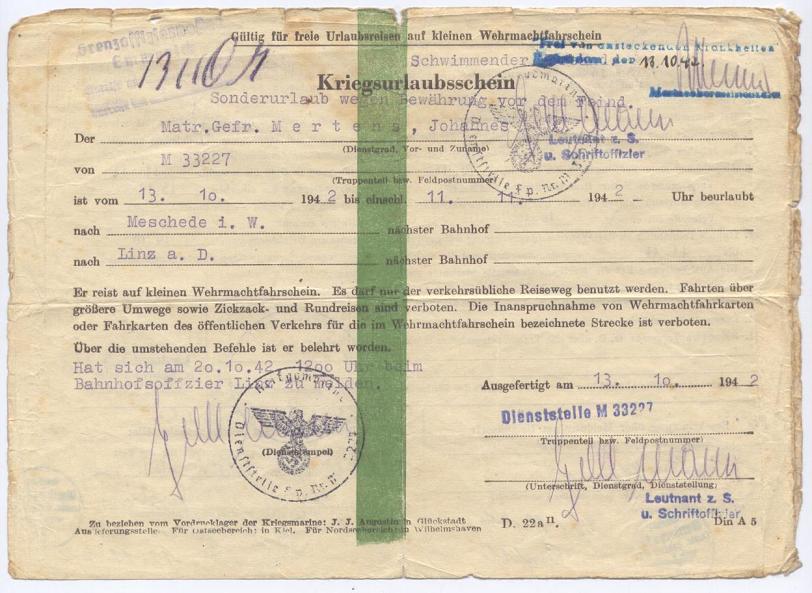 Gültig für freie Urlaubsreisen auf kleinen Wehrmachtfahrschein
Schwimmender
Frei von ansteckenden Krankheiten
der 13.10.42
Kriegsurlaubsschein
Sonderurlaub wegen Bewährung vor dem Feind.
Der Matr.Gefr. Mertens, Johannes
(Dienstgrad, Vor- und Zuname)
Leutnant z. S.
u. Schriftoffizier
von M 33227
(Truppenteil bzw. Feldpostnummer)
ist vom 13. 10. 1942 bis einschl. 11. 11. 1942 Uhr beurlaubt
nach Meschede i. W. nächster Bahnhof
nach Linz a. D. nächster Bahnhof
Er reist auf kleinen Wehrmachtfahrschein. Es darf nur der verkehrsübliche Reiseweg benutzt werden. Fahrten über
größere Umwege sowie Zickzack- und Rundreisen sind verboten. Die Inanspruchnahme von Wehrmachtfahrkarten
oder Fahrkarten des öffentlichen Verkehrs für die im Wehrmachtfahrschein bezeichnete Strecke ist verboten.
Über die umstehenden Befehle ist er belehrt worden.
Hat sich am 20.10.42 1200 Uhr beim
Bahnhofsoffizier Linz zu melden.
Ausgefertigt am 13. 10. 1942
Dienststelle M 33227
(Truppenteil bzw. Feldpostnummer)
(Dienststempel)
(Unterschrift, Dienstgrad, Dienststellung)
Leutnant z. S.
u. Schriftoffizier
Zu beziehen vom Vordrucklager der Kriegsmarine: J. J. Augustin in Glückstadt
Auslieferungsstelle. Für Ostseebereich: in Kiel. Für Nordseebereich: in Wilhelmshaven
D. 22a II. Din A 5